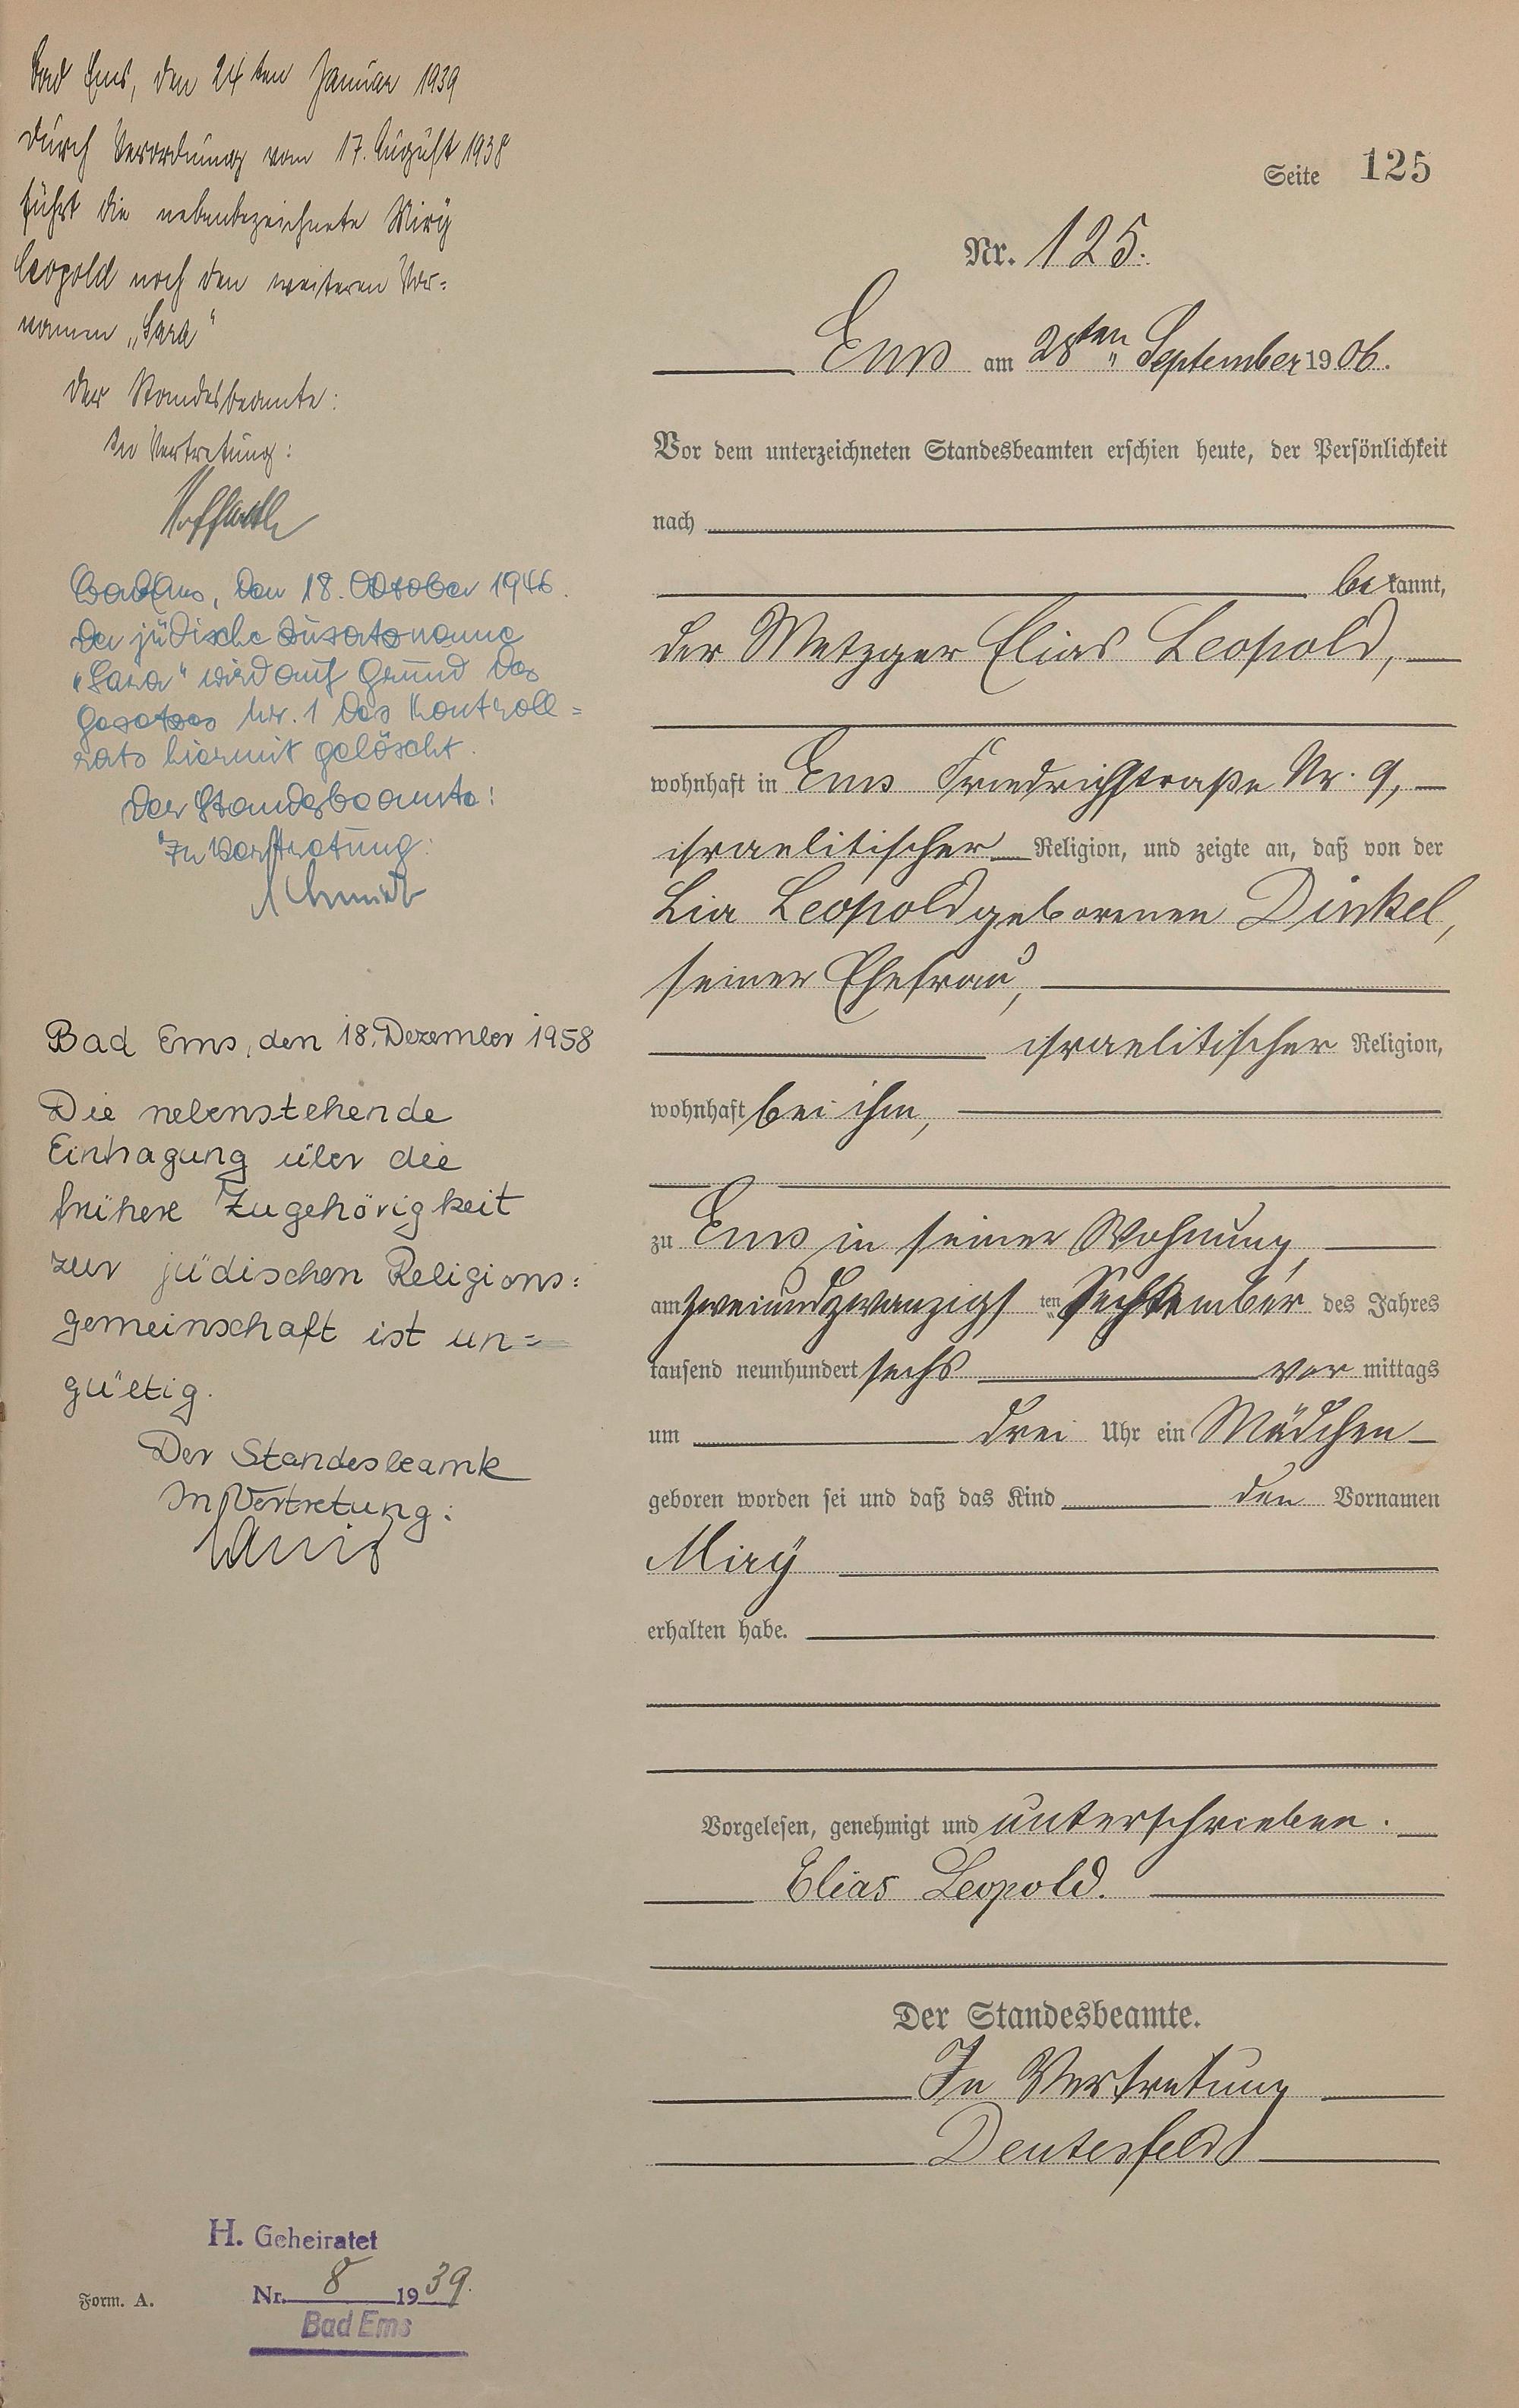 Bad Ems, den 24ten Januar 1939
Durch Verordnung vom 17. August 1938
führt die nebenbezeichnete Mirÿ
Leopold noch den weiteren Vor=
namen „Sara“
Der Standesbeamte:
In Vertretung:
Bad Ems, den 18. Oktober 1946.
Der jüdische Zusatzname
„Sara“ wird auf Grund des
Gesetzes Nr. 1 des Kontroll=
rats hiermit gelöscht.
Der Standesbeamte:
In Vertretung:
Schmidt
Bad Ems, den 18. Dezember 1958
Die nebenstehende
Eintragung über die
frühere Zugehörigkeit
zur jüdischen Religions=
gemeinschaft ist un=
gültig.
Der Standesbeamte
In Vertretung:
H. Geheiratet
Nr. 8 1939.
Bad Ems
Form. A.
Seite 125
Nr. 125.
Ems am 28ten September 1906.
Vor dem unterzeichneten Standesbeamten erschien heute, der Persönlichkeit
nach
be kannt,
der Metzger Elias Leopold,
wohnhaft in Ems Friedrichstraße Nr. 9,
israelitischer Religion, und zeigte an, daß von der
Lia Leopold geborenen Dinkel,
seiner Ehefrau,
israelitischer Religion,
wohnhaft bei ihm,
zu Ems in seiner Wohnung,
am zweiundzwanzigsten September des Jahres
tausend neunhundert sechs vor mittags
um drei Uhr ein Mädchen
geboren worden sei und daß das Kind den Vornamen
Mirÿ
erhalten habe.
Vorgelesen, genehmigt und unterschrieben.
Elias Leopold.
Der Standesbeamte.
In Vertretung
Deutesfeld